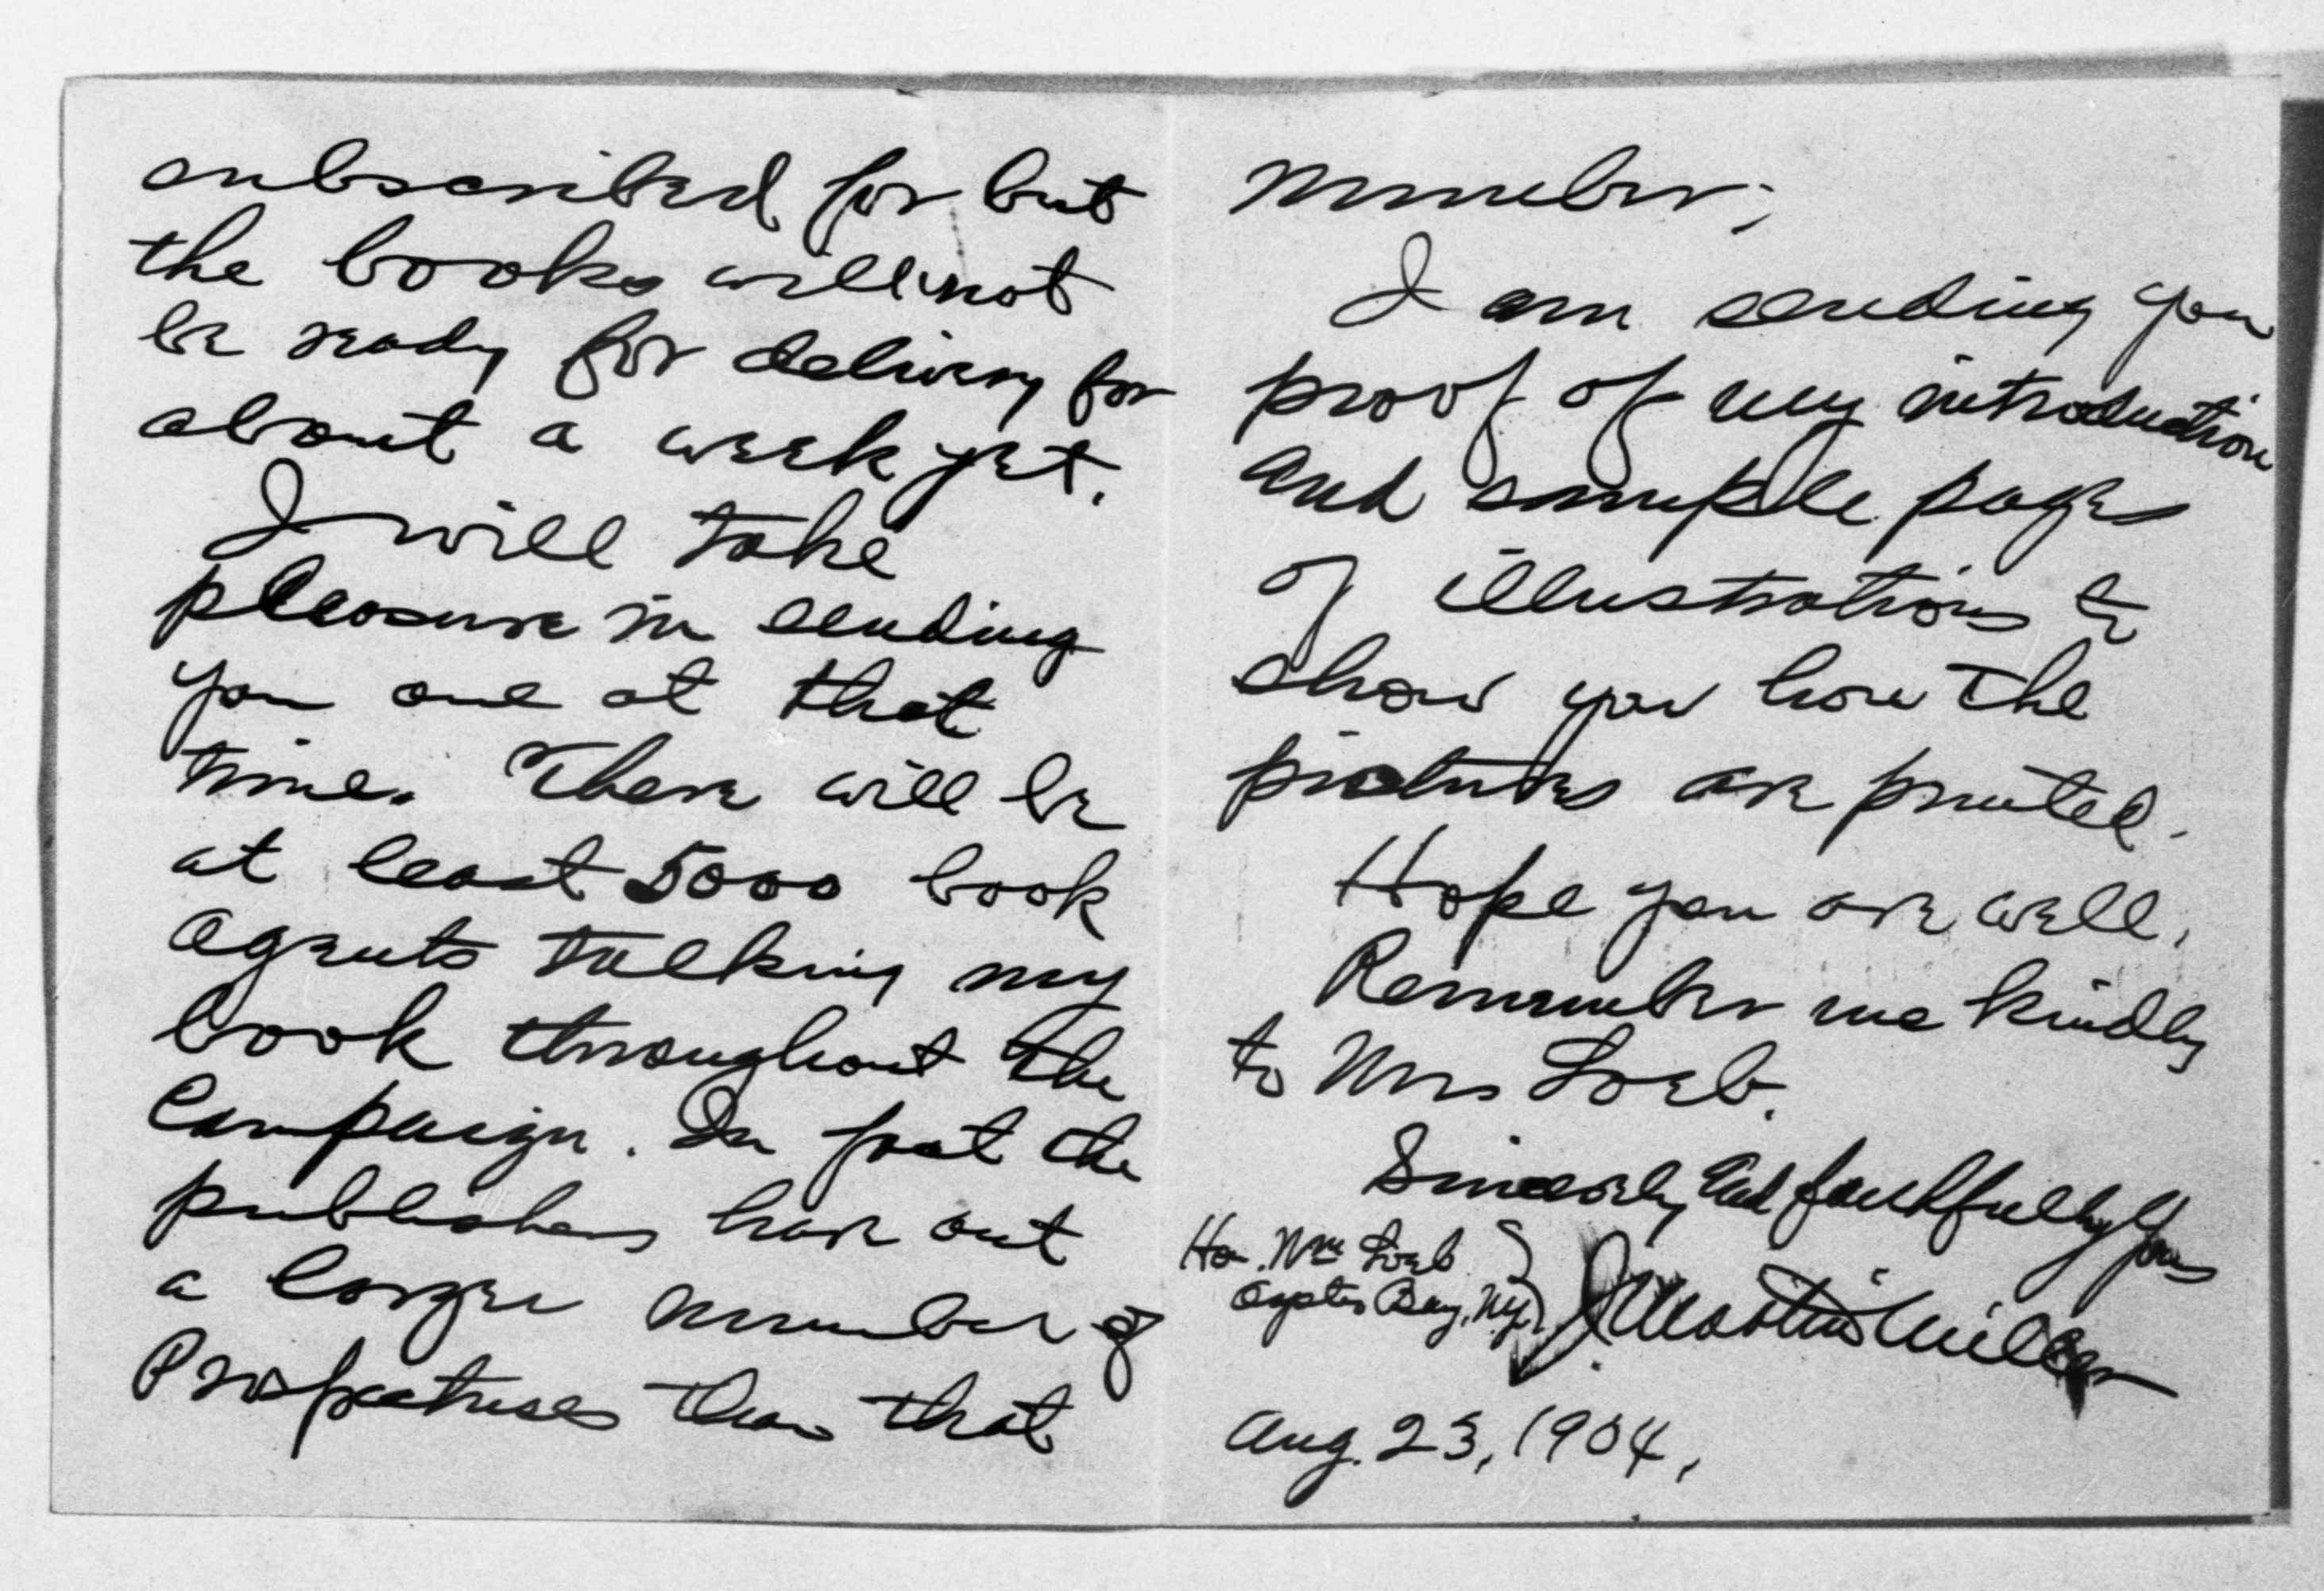 subscribed for but
the books will not
be ready for delivery for
about a week yet.
I will take
pleasure in sending
you one at that
time. There will be
at least 5000 book
agents talking my
book throughout the
Campaign. In fact the
publishers have out
a larger number of
Prospectuses than that
number;
I am sending you
proof of my introduction
and sample pages
of illustrations to
show you how the
pictures are printed.
Hope you are well.
Remember me kindly
to Mrs Loeb.
Sincerely and faithfully Yours
J Martin Miller
Hon. Wm Loeb
Oyster Bay, N.Y.
Aug. 23, 1904,